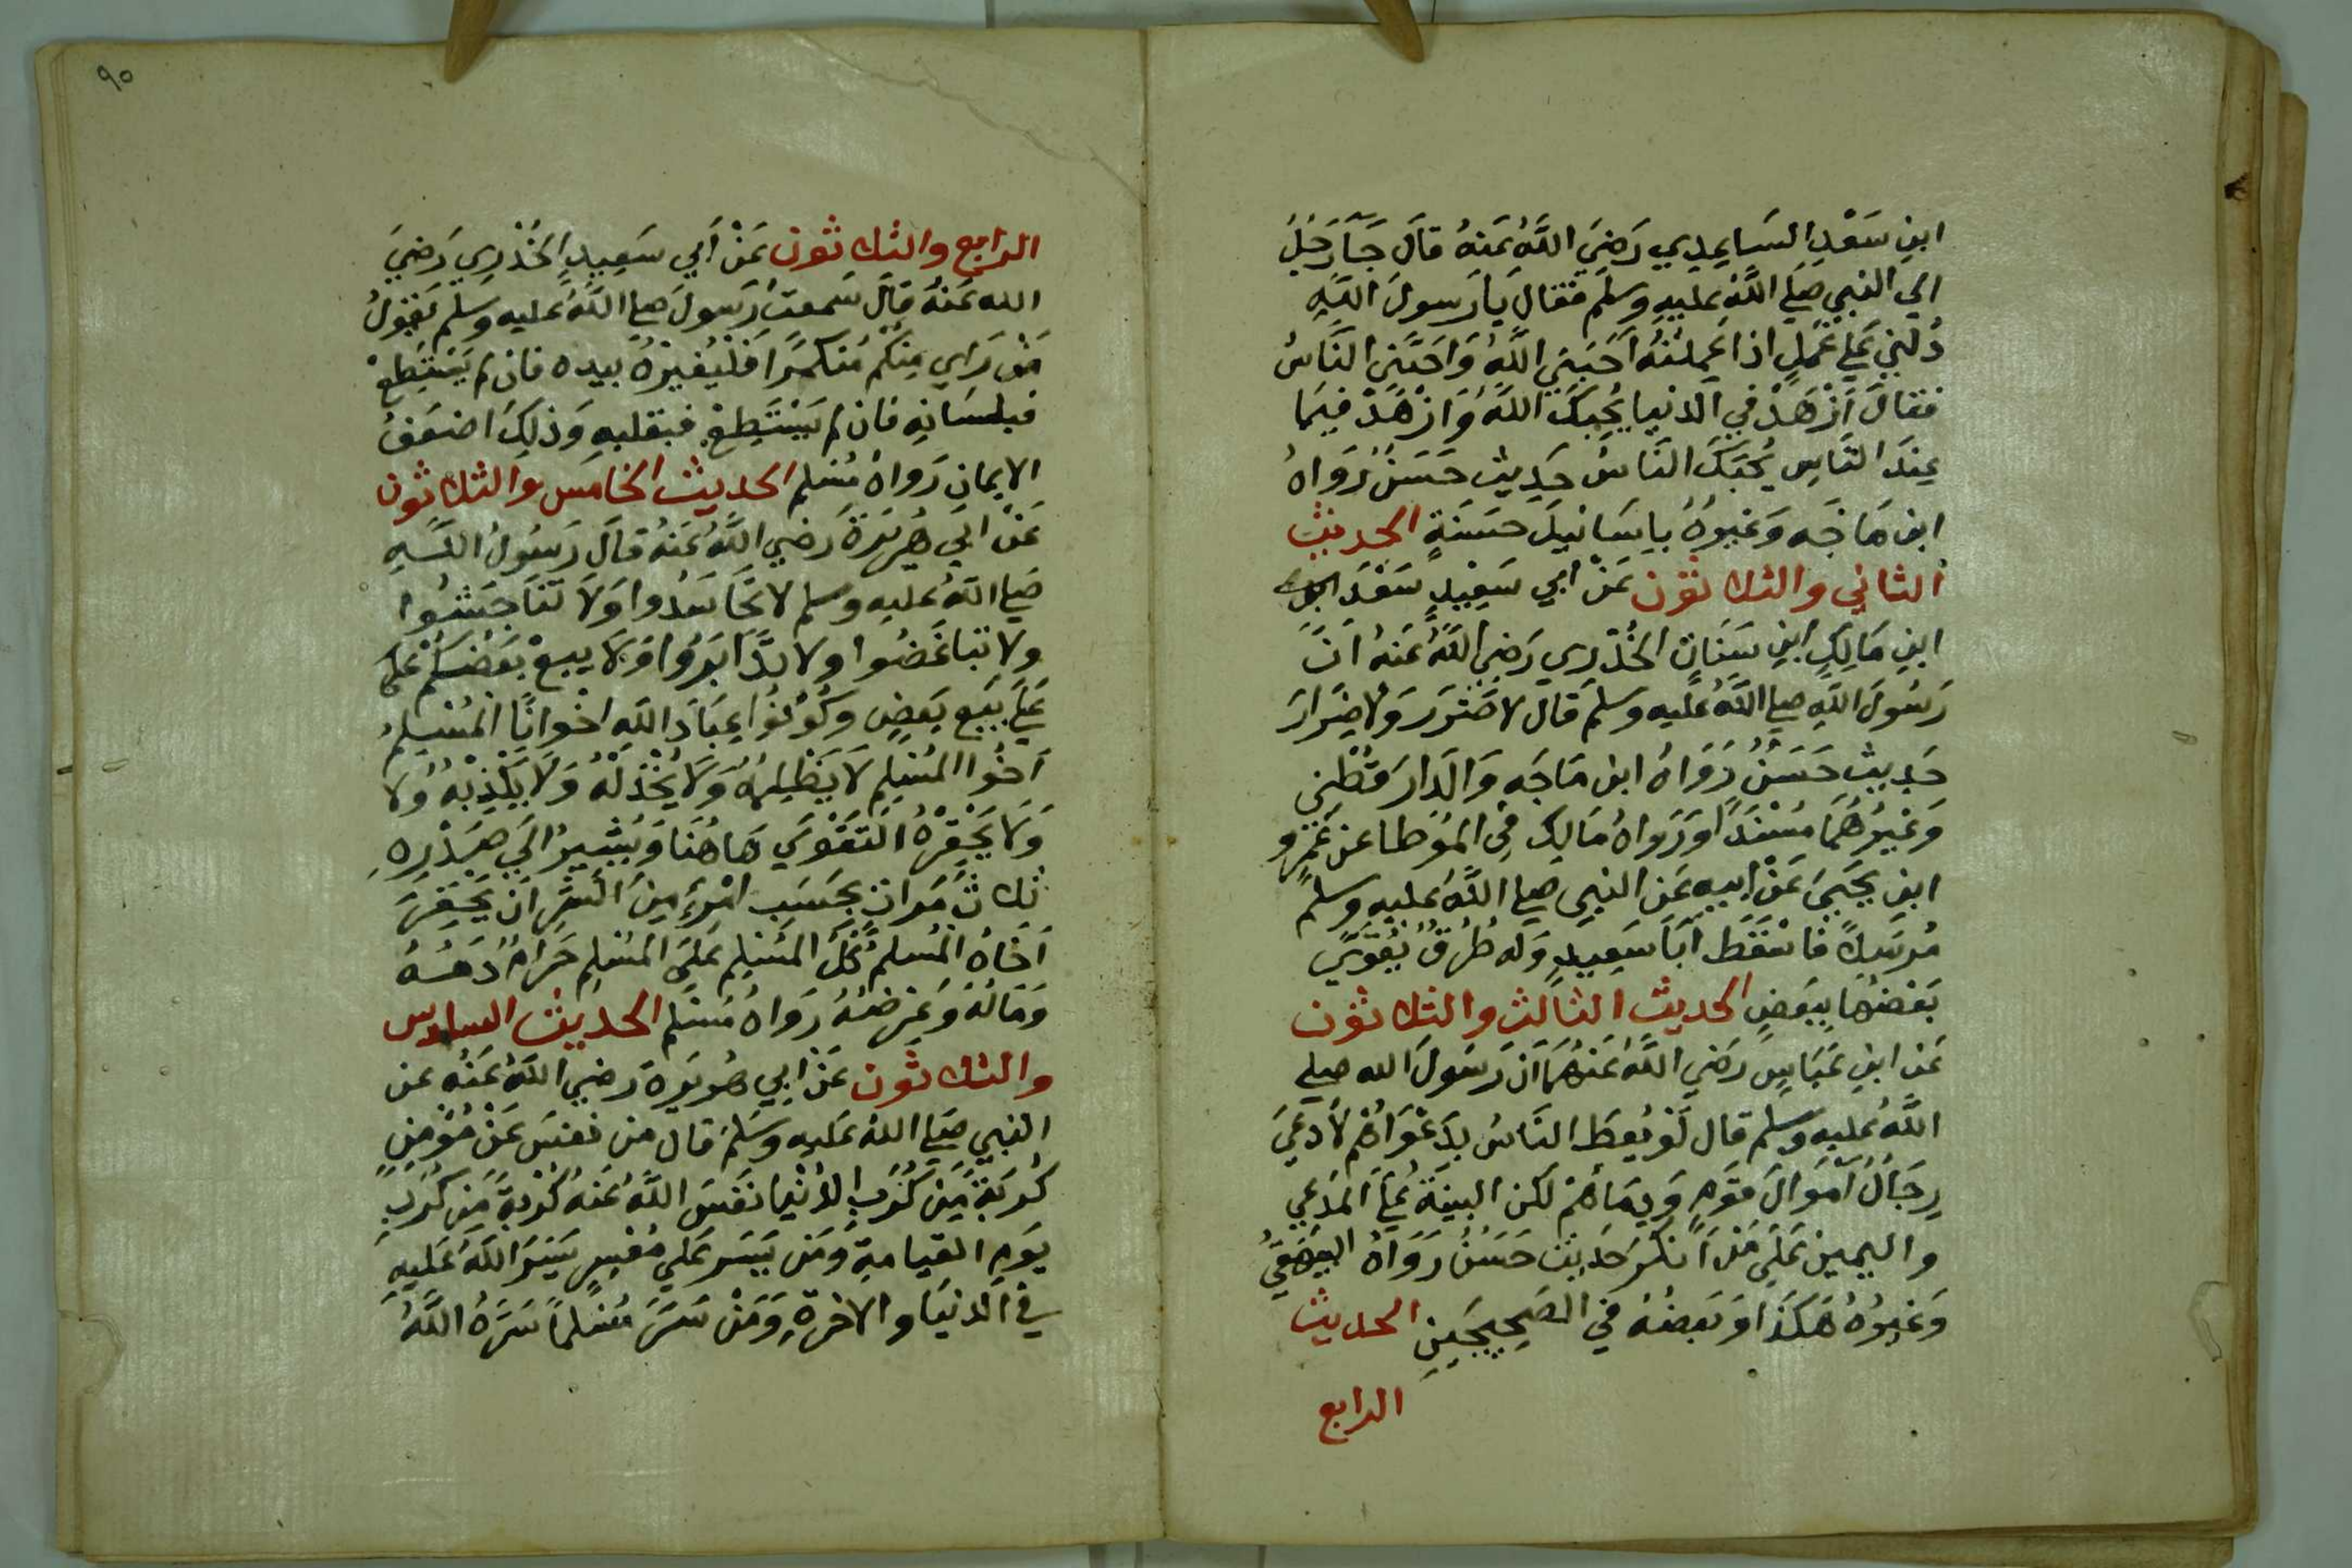 ابنِ سَعْدِ السَاعِدِي رَضِيَ اللَّهُ عَنهُ قالَ جَآءَ رَجُلٌ
الي النبي صَلي اللَّهُ عليهِ وسلم فقال يَا رَسولَ اللَّهِ
دُلَّنِي عَلي عَمَلٍ اذا عَمِلتُهُ اَحَبَّنِي اللَّهُ وَاحَبَّنِي النَّاسُ
فقالَ اَزْهَدْ فِي الدنيا يُحِبكَ اللَّهُ وَازْهَدْ فِيمَا
عِندَ النَّاسِ يُحِبَكَ النَّاسُ حَدِيث حَسَنٌ رَوَاهُ
ابن مَاجَه وَغيرُهُ باِسَانيدَ حسَنَةٍ الحديث
الثاني والثلاثون عَنْ ابي سَعِيدٍ سَعْدَ ابن
ابنِ مَالِكِ ابنِ سَنَانٍ الخُدْرِي رَضِي اللَّهُ عَنهُ اَنَّ
رَسُولَ اللَّهِ صلي اللَّهُ عَليه وسلم قال لا ضَرَرَ وَلا ضِرَارَ
حَدِيث حَسَنٌ رَوَاهُ ابن مَاجَه وَالدَارَقُطْنِي
وَغيرُهُمَا مُسْنَدًا وَرَوَاهُ مَالِك فِي المُوَطا عن عَمرو
ابنِ يَحيَي عَنْ ابيهِ عَن النبي صلي اللَّهُ عليهِ وسلم
مُرسَلاً فاسْقَطَ اَبَا سَعِيدٍ وَله طُرُقٌ يُقَوِّي
بَعْضُهَا بِبَعضٍ الحديث الثالث والثلاثون
عَن ابنِ عَبَاسٍ رَضي اللَّهُ عَنهُمَا اَنَّ رَسُولَ الله صلي
اللَّهُ عليه وسلم قال لَو يُعطَ النَاسُ بِدَعْوَاهُم لاَدعَي
رِجَالٌ اَموَالَ قَومٍ وَدِمَاءَهُمْ لكن البينَةُ عَلَي المدَعِي
واليمين عَلَي مَن اَنكَر حَدِيث حَسَنٌ رَوَاهُ البيهَقيُ
وَغيرُهُ هَكَذَا وَبَعضُهُ في الصَحِيحَينِ الحديث
الرابع
٩٠
الرابع والثلاثون عَنْ اَبي سَعِيدٍ الخُدْرِي رَضيَ
الله عَنهُ قالَ سَمعتُ رَسولَ صلي اللَّهُ عليه وسلم يَقولُ
مَنْ رَاَي مِنكُم مُنكَرًا فَلْيُغيِرْهُ بيدِه فان لم يَسْتَطِعْ
فبلِسَانِهِ فان لم يَسْتَطِعْ فبقلبهِ وَذلِكَ اضعَفُ
الايمان رَوَاهُ مُسْلم الحديث الخامس والثلاثون
عَنْ ابي هُرَيرَةَ رَضي اللَّهُ عَنهُ قالَ رَسُولُ اللَّهِ
صَلي اللهُ عليه وسلم لا تحَاسَدُوا وَلاَ تنَاجَشُوا
ولا تباغَضُوا ولا تدَابَرُوا وَلا يبعْ بَعْضكُم عَلى
عَلَي بَيعِ بَعضٍ وكُونُوا عِبَادَ اللَّهِ اخْوانًا المُسْلِمُ
اَخُوا المُسْلِم لاَ يَظلِمُهُ وَلاَ يُخْذلْهُ وَلاَ يَكْذِبْهُ وَلا
وَلاَ يَحْقِرْهُ التَقْوَي هَاهُنَا وَيُشِيرُ الَي صَدْرِهِ
ثلاثَ مَرَاتٍ بِحَسَبِ امْرِءٍ مِنَ الشَرِ اَنْ يَحقِرَ
اَخَاهُ المُسلم كُلُّ المُسْلِمِ عَلَي المُسْلِمِ حَرَامٌ دَمُهُ
وَمَالُهُ وَعِرضُهُ رَوَاهُ مُسْلِم الحديث السادس
والثلاثون عَنْ ابي هُرَيرَةَ رَضِي اللَّهُ عَنْه عن
النبي صَلي اللهُ عَليهِ وسَلمَ قال من نفسَ عَنْ مُؤْمِنٍ
كُربَةً مِن كُرَبِ الدُنْيا نَفَسَ اللَّهُ عَنهُ كُرْبةً مِن كُرَبِ
يَومِ القيامةِ وَمَن يَسَرَ عَلي مُعْسِرٍ يَسَرَ اللَّهُ عَليهِ
في الدنيَا والاخرةِ وَمَنْ سَتَرَ مُسْلِمًا سَتَرَهُ اللَّهُ